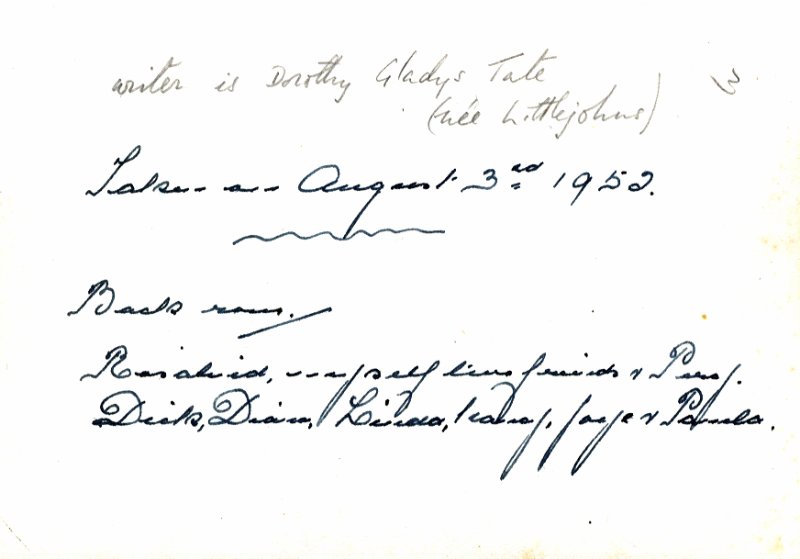 writer is Dorothy Gladys Tate
(née Littlejohns)
3
Taken on August 3rd 1952.
Back row.
Rosalind, myself two friends & Percy.
Dick, Diane, Linda, Joye & Pamela.